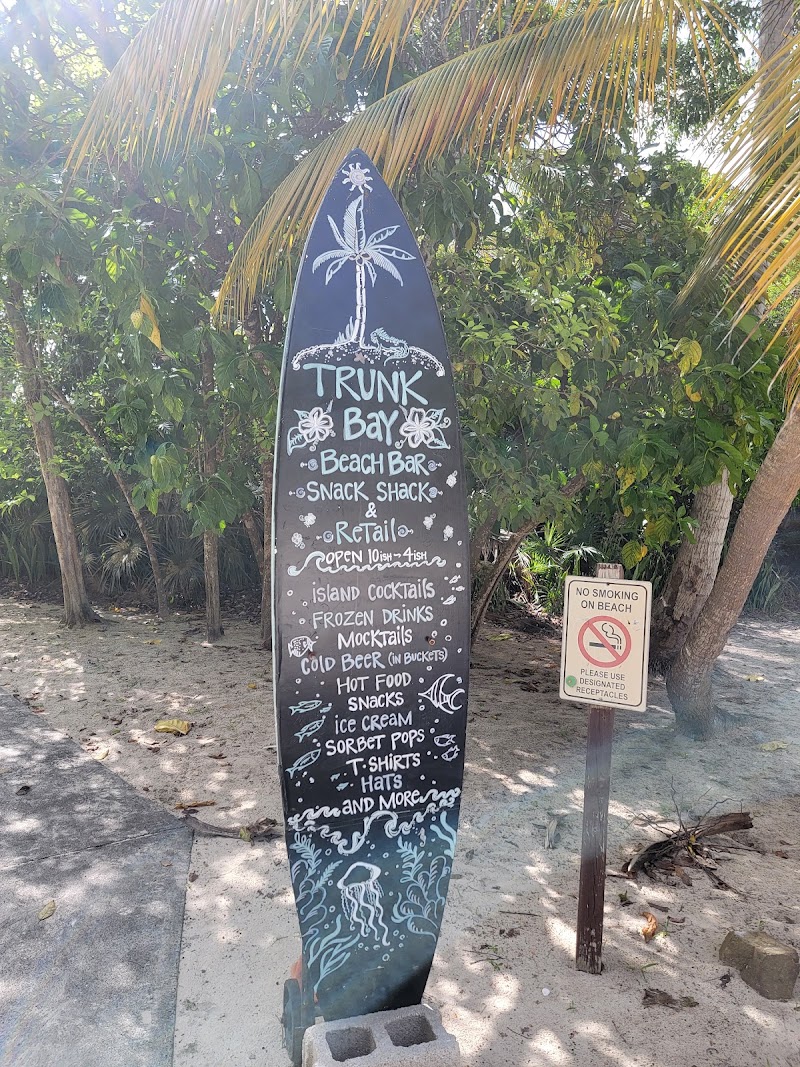 TRUNK
BAY
BEACH BAR
SNACK SHACK
&
RETAIL
OPEN 10ISH - 4ISH
ISLAND COCKTAILS
FROZEN DRINKS
MOCKTAILS
COLD BEER (IN BUCKETS)
HOT FOOD
SNACKS
ICE CREAM
SORBET POPS
T-SHIRTS
HATS
AND MORE
NO SMOKING
ON BEACH
PLEASE USE
DESIGNATED
RECEPTACLES